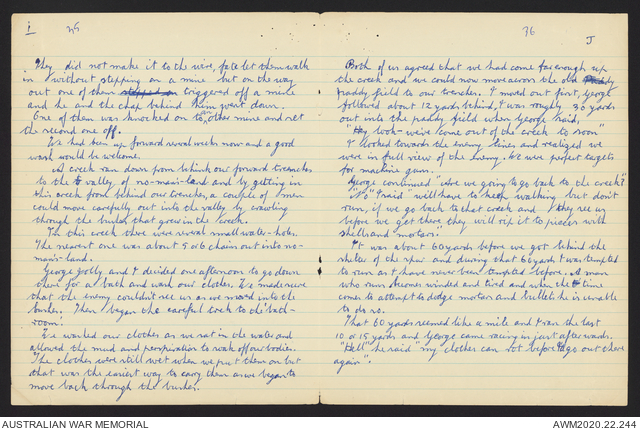 I 35
They did not make it to the wire, fate let them walk
in without stepping on a mine but on the way
out one of them stepped on triggered off a mine
and he and the chap behind him went down.
One of them was knocked on to an other mine and set
the second one off.
We had been up forward several weeks now and a good
wash would be welcome.
A creek ran down from behind our forward trenches
to the valley of no-man's-land and by getting in
this creek from behind our trenches, a couple of men
could move carefully out into the valley by crawling
through the bushes that grew in the creek.
In this creek there were several small water-holes.
The nearest one was about 5 or 6 chains out into no-
man's-land.
George Golly and I decided one afternoon to go down
there for a bath and wash our clothes. We made sure
that the enemy couldn't see us as we moved into the
bushes. Then began the careful trek to the bath-
room.
We washed our clothes as we sat in the water and
allowed the mud and perspiration to soak off our bodies.
The clothes were still wet when we put them on but
that was the easiest way to carry them as we began to
move back through the bushes.
36 J
Both of us agreed that we had come far enough up
the creek and we could now move across the old paddy
paddy field to our trenches. I moved out first, George
followed about 12 yards behind, I was roughly 30 yards
out into the paddy field when George said,
"Hey look - we've come out of the creek to soon"
I looked towards the enemy lines and realized we
were in full view of the enemy. We were perfect targets
for machine guns.
George continued "Are we going to go back to the creek?"
"No" I said "will have to keep walking but don't
run, if we go back to that creek and they see us
before we get there they will rip it to pieces with
shells and mortars."
It was about 60 yards before we got behind the
shelter of the spur and during that 60 yards I was tempted
to run as I have never been tempted before. A man
who runs becomes winded and tired and when the time
comes to attempt to dodge mortar and bullets he is unable
to do so.
That 60 yards seemed like a mile and I ran the last
10 or 15 yards and George came racing in just afterwards.
"Hell" he said "my clothes can rot before I go out there
again".
AUSTRALIAN WAR MEMORIAL
AWM2020.22.244